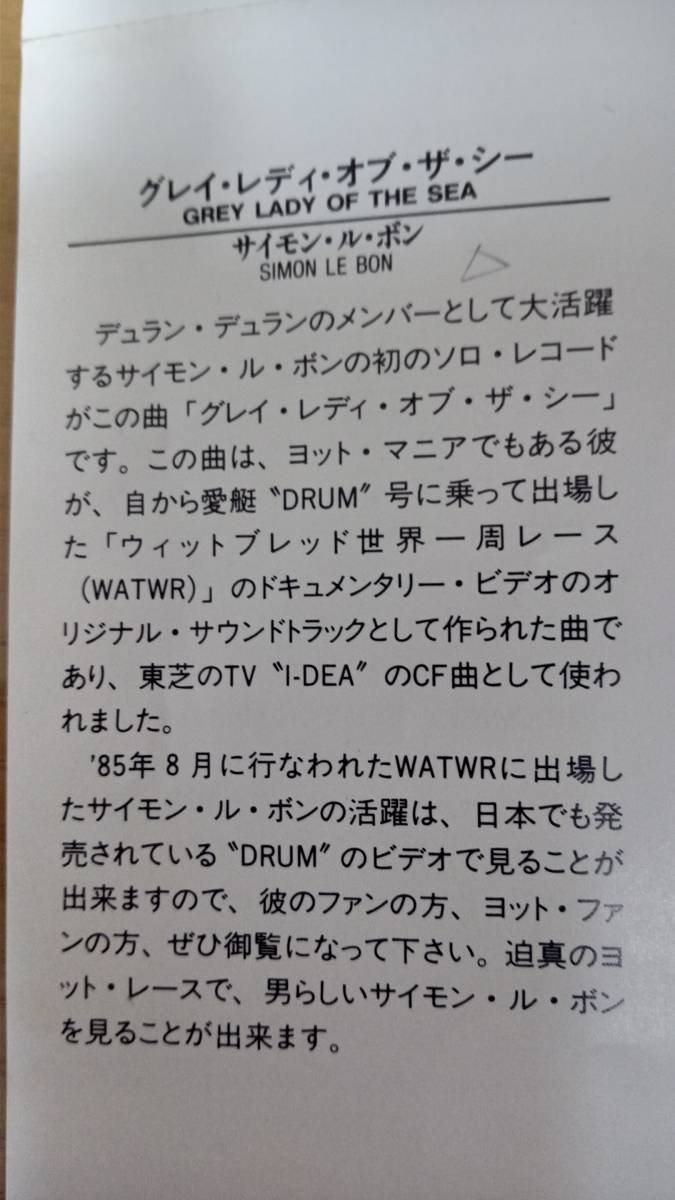 グレイ・レディ・オブ・ザ・シー
GREY LADY OF THE SEA
サイモン・ル・ボン
SIMON LE BON
デュラン・デュランのメンバーとして大活躍
するサイモン・ル・ボンの初のソロ・レコード
がこの曲「グレイ・レディ・オブ・ザ・シー」
です。この曲は、ヨット・マニアでもある彼
が、自から愛艇〝DRUM〞号に乗って出場し
た「ウィットブレッド世界一周レース
(WATWR)」のドキュメンタリー・ビデオのオ
リジナル・サウンドトラックとして作られた曲で
あり、東芝のTV〝I-DEA〞のCF曲として使わ
れました。
'85年8月に行なわれたWATWRに出場し
たサイモン・ル・ボンの活躍は、日本でも発
売されている〝DRUM〞のビデオで見ることが
出来ますので、彼のファンの方、ヨット・ファ
ンの方、ぜひ御覧になって下さい。迫真のヨ
ット・レースで、男らしいサイモン・ル・ボン
を見ることが出来ます。